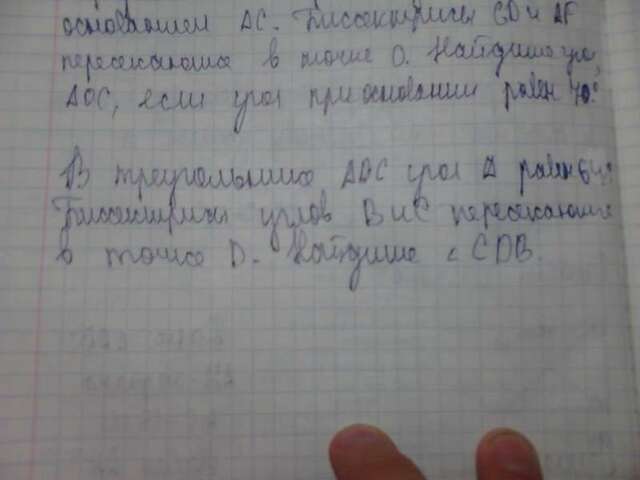 основанием AC. Биссектрисы CD и AF
пересекающие в точке O. Найдите
AOC, если угол при основании равен 70°
В треугольнике ABC угол A равен 64°
Биссектрисы углов B и C пересекающие
в точке D. Найдите ∠ CDB.